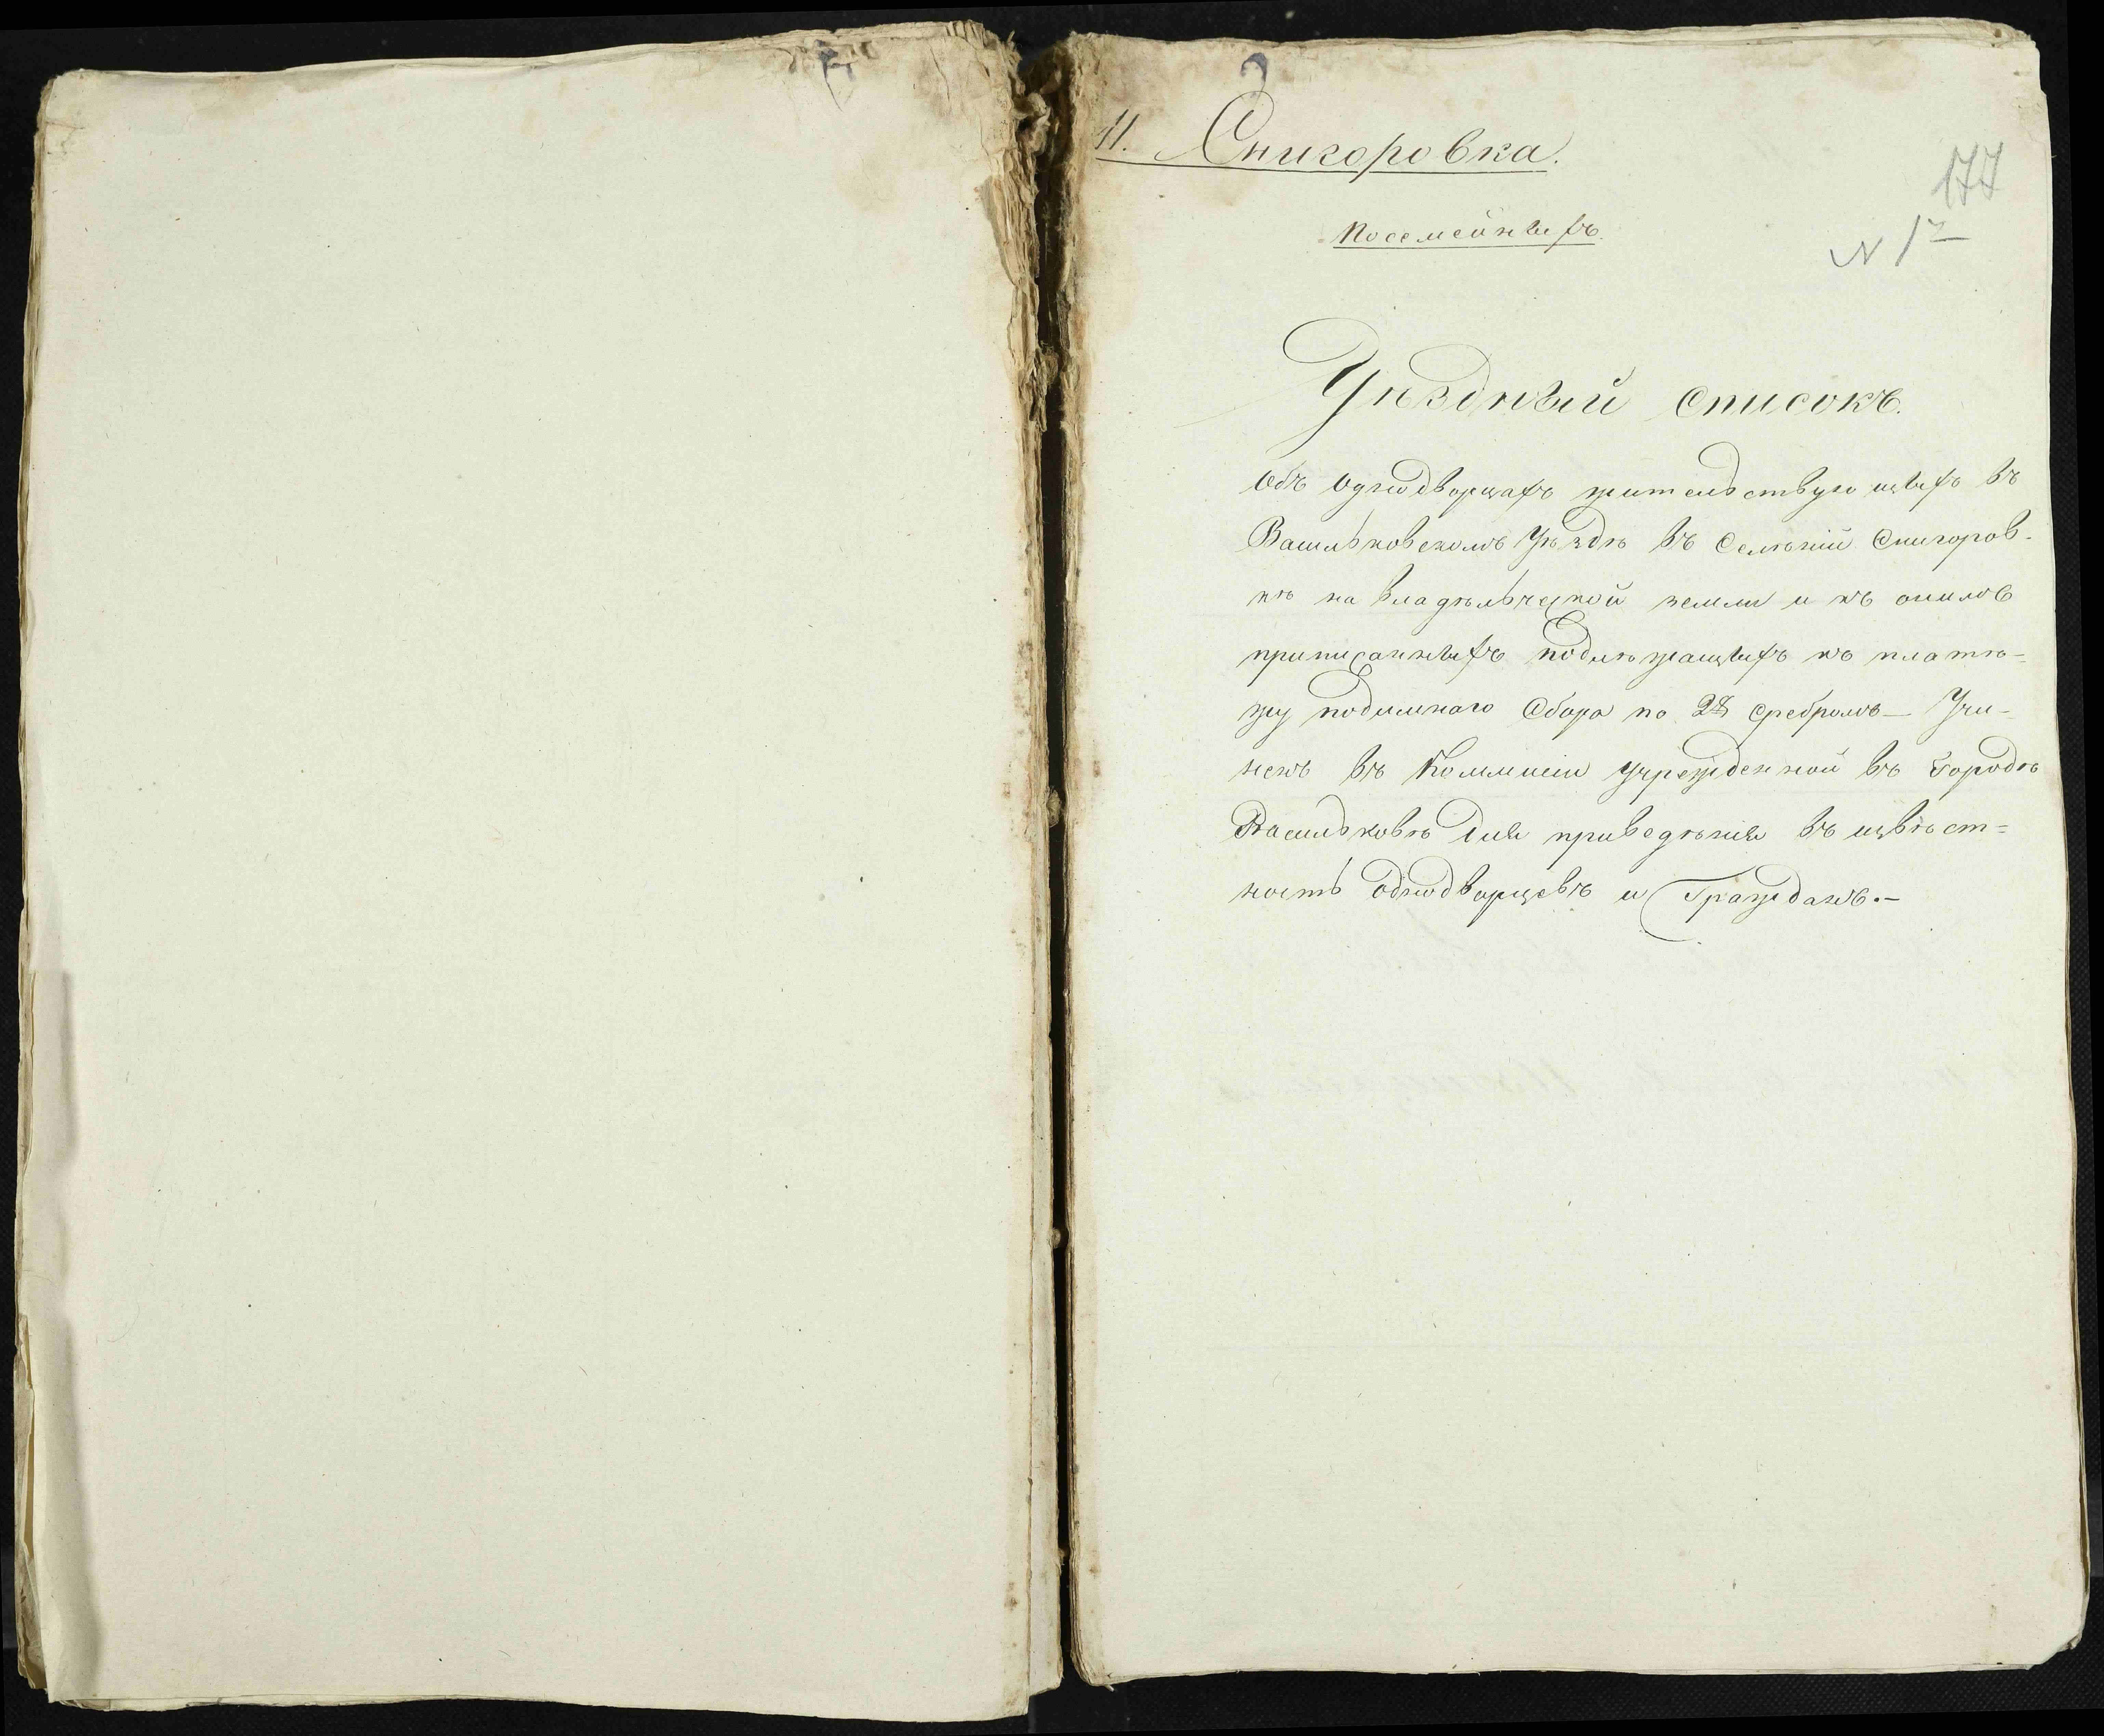 11. Снигоровка.
177
Посемейныхъ.
N 12
Уѣздный списокъ.
Объ Однодворцахъ жительствующыхъ въ
Васильковскомъ Уѣздѣ въ Селѣніи Снигоров-
кѣ на владѣльческой земли и къ онимъ
приписанныхъ подлѣжащыхъ къ платѣ-
жу подымнаго Сбора по 2 р Сребромъ — Учи-
ненъ въ Коммисіи Учрежденной въ Городѣ
Васильковѣ для привѣдѣнія въ извѣст=
ность однодворцевъ и Гражданъ.–